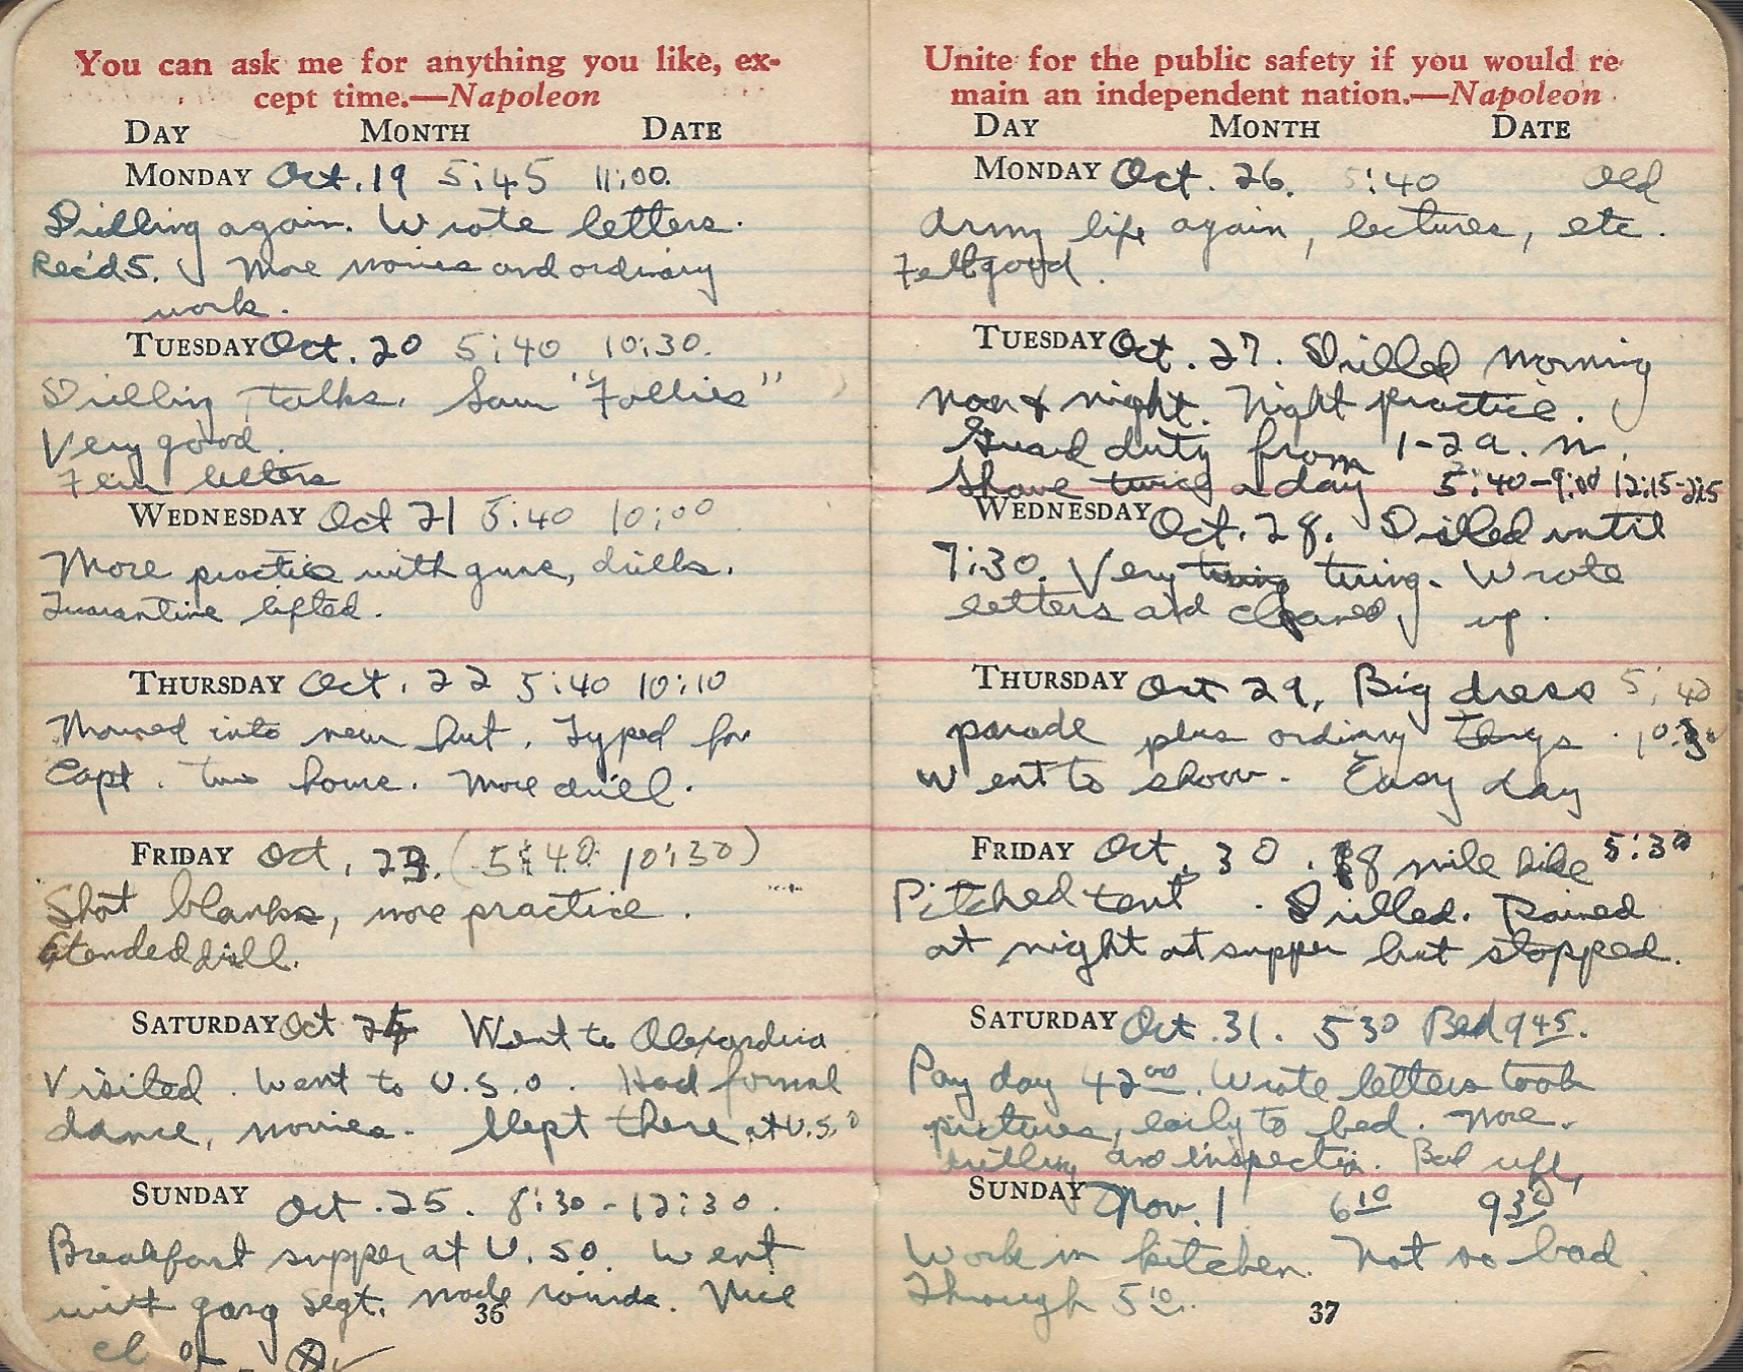 You can ask me for anything you like, ex-
cept time.—Napoleon
DAY MONTH DATE
MONDAY Oct. 19 5:45 11:00.
Drilling again. Wrote letters.
Rec'd 5. More movies and ordinary
work.
TUESDAY Oct. 20 5:40 10:30.
Drilling, talks. Saw "Follies"
Very good.
Few letters
WEDNESDAY Oct 21 5:40 10:00
More practice with guns, drills.
Quarantine lifted.
THURSDAY Oct. 22 5:40 10:10
Moved into new hut. Typed for
Capt. two hours. More drill.
FRIDAY Oct. 23. (5:40 10:30)
Shot blanks, more practice.
drill.
SATURDAY Oct 24 Went to Alexandria
Visited. Went to U.S.O. Had formal
dance, movies. Slept there at U.S.O
SUNDAY Oct. 25. 8:30 - 12:30.
Breakfast supper at U.SO. Went
with gang Segt. made rounds. Nice
36
Unite for the public safety if you would re-
main an independent nation.—Napoleon
DAY MONTH DATE
MONDAY Oct. 26. 5:40 Old
Army life again, lectures, etc.
Felt good.
TUESDAY Oct. 27. Drilled morning
noon & night. Night practice.
Guard duty from 1-2 a.m.
Shave twice a day 5:40-9:00 12:15-2:15
WEDNESDAY Oct. 28. Drilled until
7:30. Very tiring. Wrote
letters and cleaned up.
THURSDAY Oct 29. Big dress 5:40
parade plus ordinary things. 10:30
Went to show. Easy day
FRIDAY Oct. 30. 8 mile hike 5:30
Pitched tent. Drilled. Rained
at night at supper but stopped.
SATURDAY Oct. 31. 530 Bed 945.
Pay day 4200. Wrote letters took
pictures, early to bed. More
drilling and inspection.
SUNDAY Nov. 1 610 930
Work in kitchen. Not so bad.
Through 510.
37